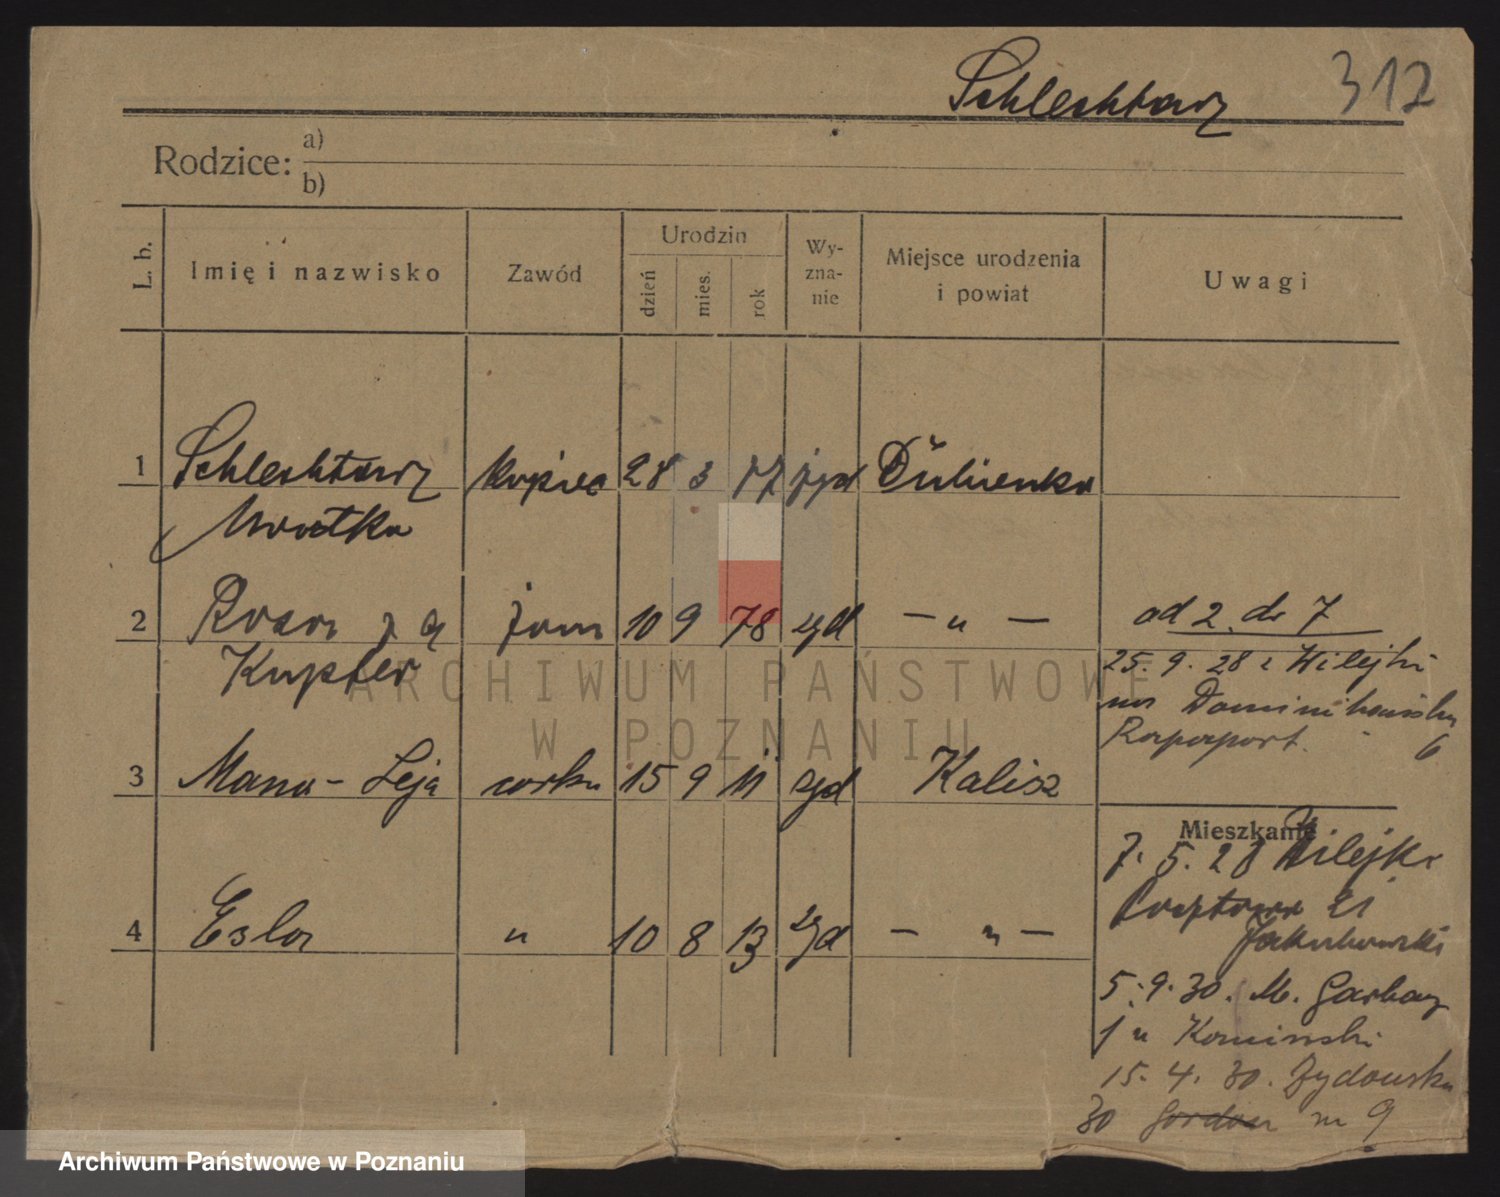 Schlechtarz 312
Rodzice: a)
b)
L. b. Imię i nazwisko Zawód Urodzin dzień mies. rok Wy-zna-nie Miejsce urodzenia i powiat Uwagi
1 Schlechtarz kupiec 28 3 77 żyd Dubienka
2 z d żona 10 9 78 żyd — " — od 2 do 7
Kupfer 25. 9. 28 z Wilejki
Rapaport. 6
3 Mana - Leja córka 15 9 11 żyd Kalisz
Mieszkanie
7. 5. 28 Wilejka
4 Estera " 10 8 13 żyd — " — 21
Jakubowski
5. 9. 30. M. Garbary
Kominski
15. 4. 30. Żydowska
30 Gordon m 9
ARCHIWUM PAŃSTWOWE
W POZNANIU
Archiwum Państwowe w Poznaniu